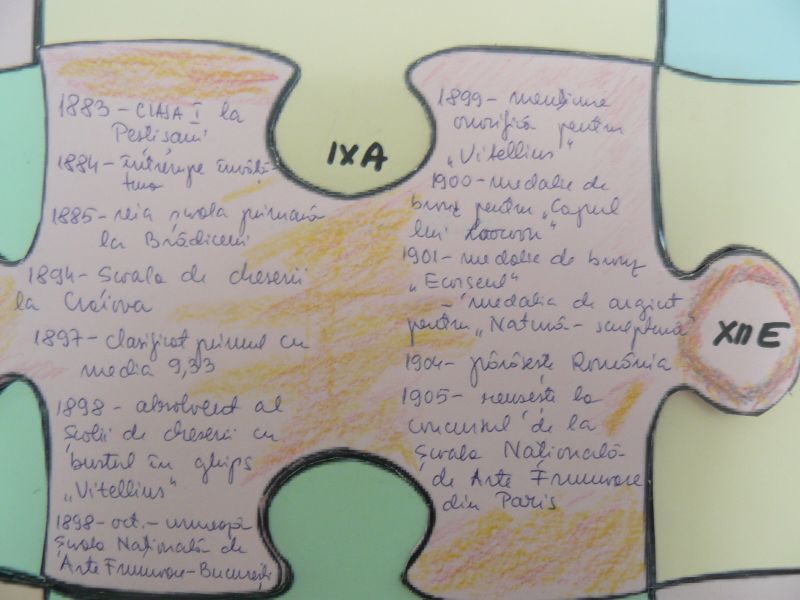 1883 - CLASA I la
Peștișani
1884 - întrerupe învăță-
tura
1885 - reia școala primară
la Brădiceni
1894 - Școala de meserii
la Craiova
1897 - clasificat primul cu
media 9,33
1898 - absolvent al
Școlii de meserii cu
bustul în ghips
„Vitellius"
1898 - oct. - urmează
Școala Națională de
Arte Frumoase - București
IXA
1899 - mențiune
onorifică pentru
„Vitellius"
1900 - medalie de
bronz pentru „Capul
lui Laocoon"
1901 - medalie de bronz
„Ecorșeul"
- medalia de argint
pentru „Natură - sculptură"
1904 - părăsește România
1905 - reușește la
concursul de la
Școala Națională
de Arte Frumoase
din Paris
XII E